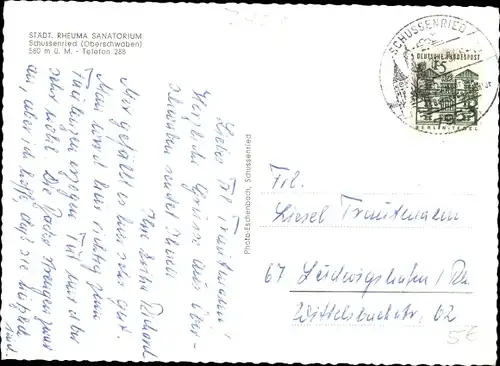 STÄDT. RHEUMA SANATORIUM
Schussenried (Oberschwaben)
560 m ü. M. - Telefon 288
Liebes Frl. Trautmann!
Herzliche Grüsse aus Ober-
schwaben sendet Ihnen
Ihre
Mir gefällt es hier sehr gut.
Man wird hier richtig zum
Faulenzen erzogen. Tut mir aber
sehr wohl. Die Bäder strengen zwar
an, aber ich hoffe, daß sie nützlich
sind.
Photo-Eschenbach, Schussenried
SCHUSSENRIED
DEUTSCHE BUNDESPOST
15
BERLIN-TEGEL
Frl.
Liesel Trautmann
67 Ludwigshafen/Rh.
Wittelsbachstr. 62
5€